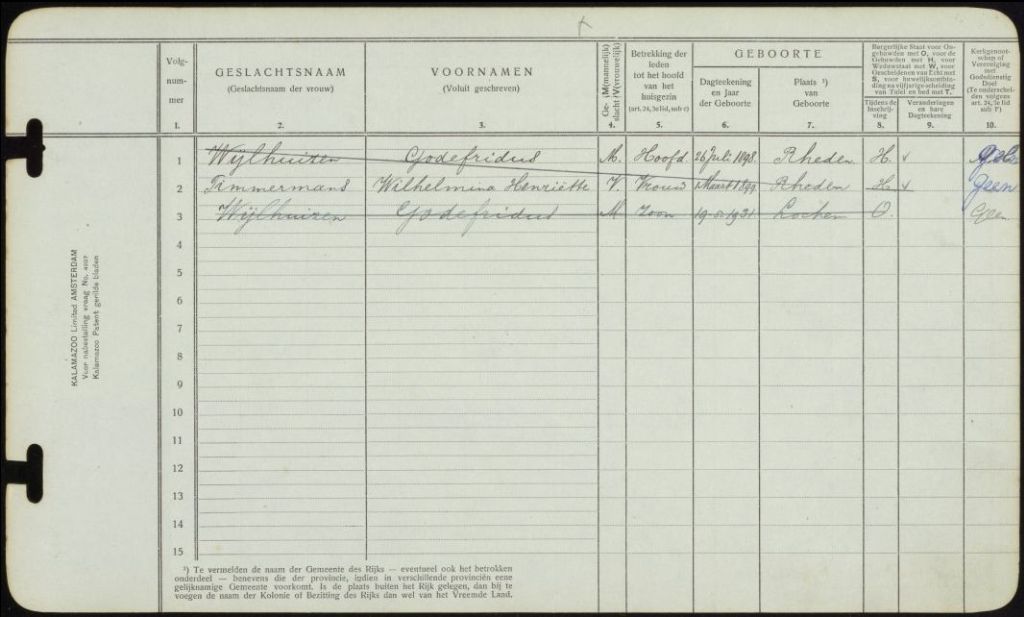 Volg-
num-
mer
1.
GESLACHTSNAAM
(Geslachtsnaam der vrouw)
2.
VOORNAMEN
(Voluit geschreven)
3.
Ge- M(mannelijk)
slacht V(vrouwelijk)
4.
Betrekking der
leden
tot het hoofd
van het
huisgezin
(art. 24, 3e lid, sub c)
5.
GEBOORTE
Dagteekening
en Jaar
der Geboorte
6.
Plaats ³)
van
Geboorte
7.
Burgerlijke Staat voor On-
gehuwden met O, voor de
Gehuwden met H, voor
Weduwstaat met W, voor
Gescheidenen van Echt met
S, voor huwelijksontbin-
ding na vijfjarige scheiding
van Tafel en bed met T.
Tijdens de
Inschrij-
ving
8.
Veranderingen
en hare
Dagteekening
9.
Kerkgenoot-
schap of
Vereeniging
met
Godsdienstig
Doel
(Te onderschei-
den volgens
art. 24, 3e lid
sub F)
10.
1 Wijlhuizen Godefridus M. Hoofd 26 Juli 1898. Rheden H.
2 Timmermans Wilhelmina Henriëtte V. Vrouw Maart Rheden H. Geen
3 Wijlhuizen Godefridus M Zoon Lochem O. Geen
4
5
6
7
8
9
10
11
12
13
14
15
KALAMAZOO Limited AMSTERDAM
Voor nabestelling vraag No.
Kalamazoo Patent gerilde bladen
³) Te vermelden de naam der Gemeente des Rijks — eventueel ook het betrokken
onderdeel — benevens die der provincie, indien in verschillende provinciën eene
gelijknamige Gemeente voorkomt. Is de plaats buiten het Rijk gelegen, dan bij te
voegen de naam der Kolonie of Bezitting des Rijks dan wel van het Vreemde Land.